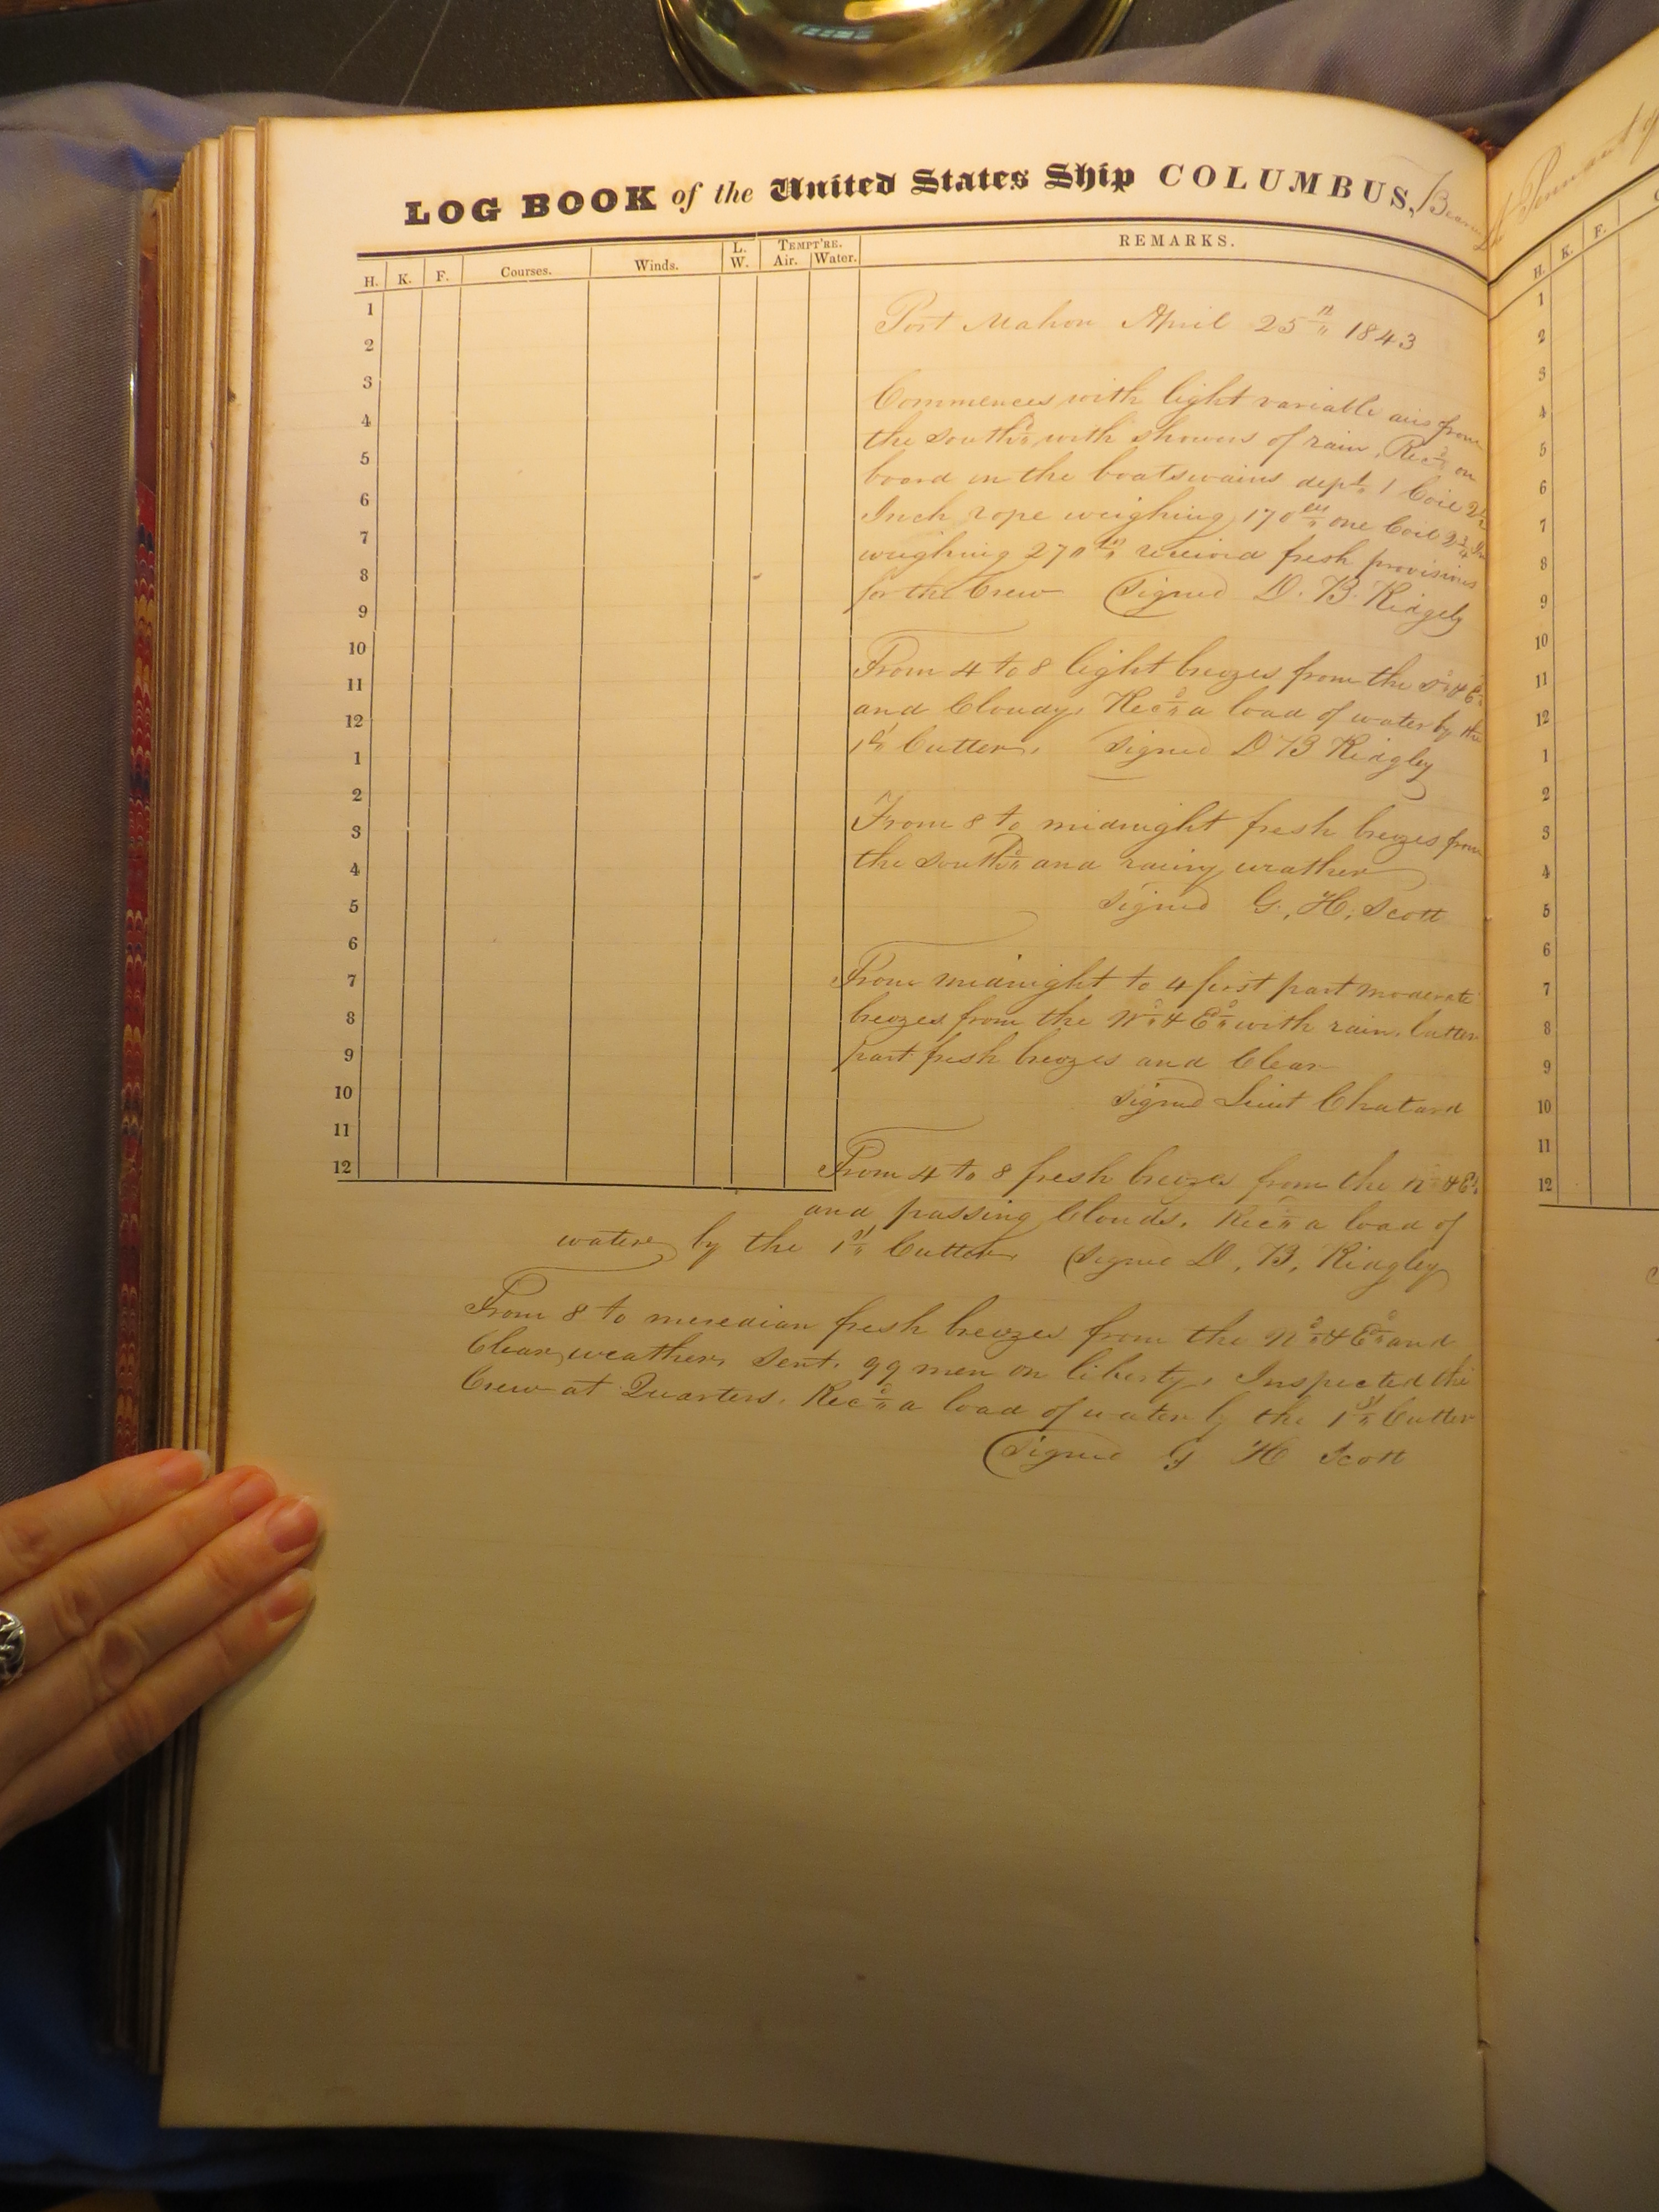 LOG BOOK of the United States Ship COLUMBUS,
H. K. F. Courses. Winds. L. W. TEMPT'RE. Air. Water. REMARKS.
1
2
3
4
5
6
7
8
9
10
11
12
1
2
3
4
5
6
7
8
9
10
11
12
Port Mahon April 25th 1843
Commences with light variable airs from
the southd with showers of rain, Recd on
board in the boatswains dept 1 Coil 2½
Inch rope weighing 170 lbs one Coil 2¾ In
weighing 270 lbs received fresh provisions
for the Crew (Signed D. B. Ridgely
From 4 to 8 light breezes from the Sd & Ed
and Cloudy, Recd a load of water by the
1st Cutter, Signed D B Ridgley
From 8 to midnight fresh breezes from
the southd and rainy weather
Signed G. H. Scott
From midnight to 4 first part moderate
breezes from the Nd & Ed with rain, latter
part fresh breezes and Clear
signed Lieut Chatard
From 4 to 8 fresh breezes from the Nd & Ed
and passing Clouds. Recd a load of
water by the 1st Cutter (Signed D. B. Ridgley
From 8 to meredian fresh breezes from the Nd & Ed and
Clear weather, Sent. 99 men on liberty, Inspected the
Crew at Quarters, Recd a load of water by the 1st Cutter
(Signed G H Scott
H. K. F.
1
2
3
4
5
6
7
8
9
10
11
12
1
2
3
4
5
6
7
8
9
10
11
12